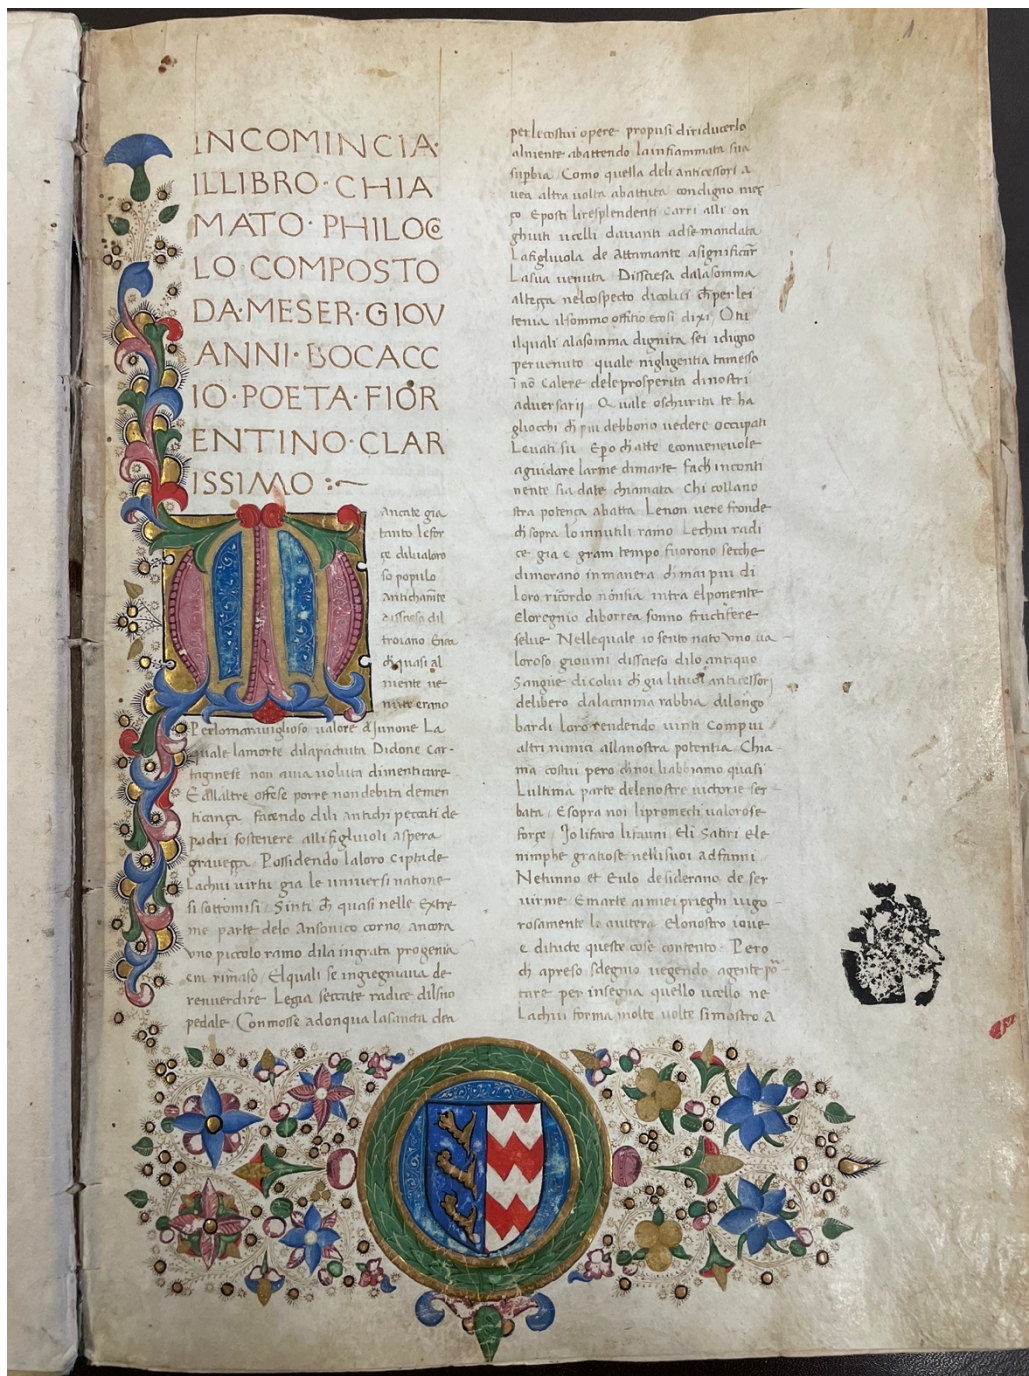 1
INCOMINCIA·
ILLIBRO·CHIA
MATO·PHILOCO
LO COMPOSTO
DA·MESER·GIOV
ANNI·BOCACC
IO·POETA·FIOR
ENTINO·CLAR
ISSIMO :~
M
ancate gia
tanto le for
çe dil ualoro
so populo
antichamte
disscieso dil
troiano Enea
ch quasi al
niente ne
nute erano
Perlomaraviglioso valore di Junone La
quale lamorte dilapactuita Didone Car-
taginese non auia uoluta dimenticare
E allaltre offese porre non debita demen
ticança facendo dili antichi peccati de
padri sostenere alli figluioli aspera
graveçça Possidendo laloro ciptade
Lachui uirtu gia le universi natione
si sottomisi Sinti ch quasi nelle extre-
me parte delo Ansonico corno ancora
uno piccolo ramo dila ingrata progenia
era rimaso Elquali se ingiegnaua de-
renuerdire Legia seccate radice dilsuo
pedale Conmosse adonqua lasancta dea
perlecostui opere propusi diriducerlo
alniente abattendo lainfiammata sua
supbia Como quella deli anticessori a
uea altra uolta abattuta condigno meç
ço E posti liresplendenti Carri alli on
ghiuti ucelli dauanti adse mandata
Lafigluiola de Attamante asignificar
Lasua uenuta Disciesa dalasomma
alteça nelcospecto dicolui ch per lei
tenia ilsommo offitio cosi dixi O tu
ilquali alasomma dignita sei idigno
peruenuto quale nigligentia tamesso
i nõ calere dele prosperita dinostri
adversarij Quale oschurita te ha
gliocchi ch piu debbono uedere occupati
Leuati su Epo ch atte econueneuole
aguidare larme dimarte fach inconti
nente sia date chiamata Chi collano
stra potença abatta Lenon uere fronde
ch sopra lo innutili ramo Lechui radi
ce gia e gram tempo fuorono secche
dimorano in manera ch mai piu di
loro ricordo nonsia intra elponente
Eloregnio diborrea sonno fructifere
selue Nellequale io sento nato uno ua
loroso giouini disscieso dilo antiquo
Sangue di colui ch gia lituoi anticessorj
delibero dalacanina rabbia dilongo
bardi loro rendendo uinti Compiu
altri nimici allanostra potentia Chia
ma costui pero ch noi habbiamo quasi
Lultima parte delenostre uictorie ser
bata E sopra noi lipromecti ualorose
forçe Jo lifaro lifauni Eli Satiri Ele
nimphe gratiose nellisuoi adfanni
Netunno et Eulo desiderano de ser
uirme E marte ai miei prieghi uigo
rosamente lo aiutera Elonostro ioue
e ditucte queste cose contento Pero
ch apreso sdegnio uegendo agente po
tare per insegna quello ucello ne
Lachui forma molte uolte simostro a